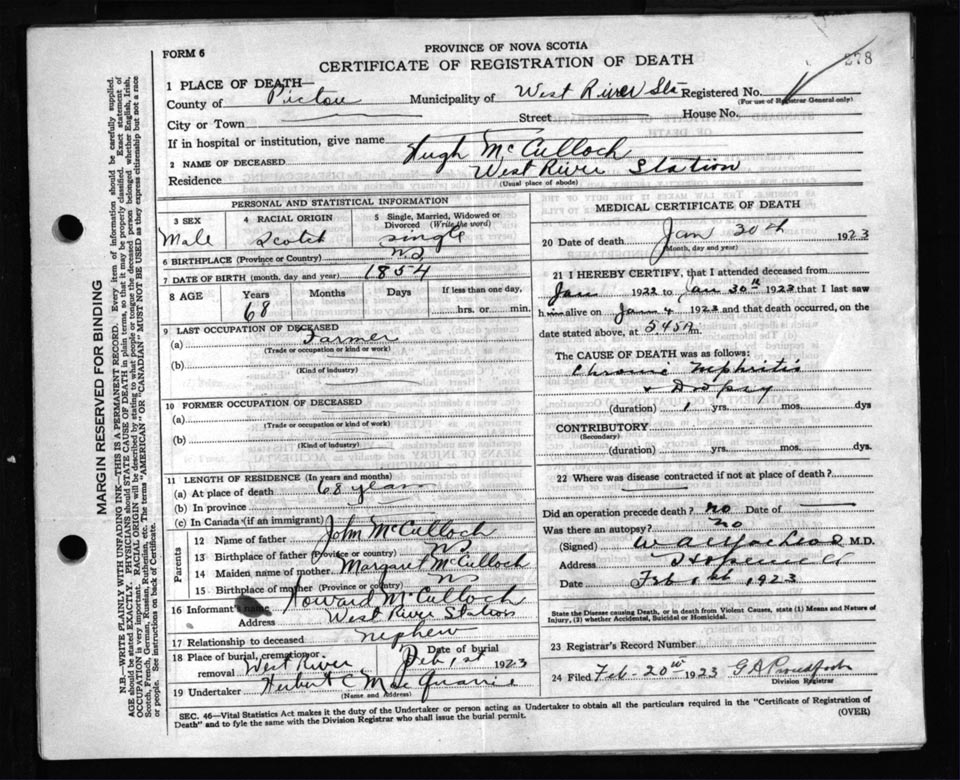 278
FORM 6
PROVINCE OF NOVA SCOTIA
CERTIFICATE OF REGISTRATION OF DEATH
1 PLACE OF DEATH—
County of Pictou Municipality of West River Sta Registered No.
(For use of Registrar General only)
City or Town Street House No.
If in hospital or institution, give name
2 NAME OF DECEASED Hugh McCulloch
Residence West River Station
(Usual place of abode)
PERSONAL AND STATISTICAL INFORMATION
3 SEX
Male
4 RACIAL ORIGIN
Scotch
5 Single, Married, Widowed or Divorced (Write the word)
Single
6 BIRTHPLACE (Province or Country) N.S.
7 DATE OF BIRTH (month, day and year) 1854
8 AGE Years Months Days If less than one day,
68 hrs. or min.
9 LAST OCCUPATION OF DECEASED
(a) Farmer
(Trade or occupation or kind or work)
(b)
(Kind of industry)
10 FORMER OCCUPATION OF DECEASED
(a)
(Trade or occupation or kind or work)
(b)
(Kind of industry)
11 LENGTH OF RESIDENCE (In years and months)
(a) At place of death 68 years
(b) In province
(c) In Canada (if an immigrant)
Parents
12 Name of father John McCulloch
13 Birthplace of father (Province or country) N.S.
14 Maiden name of mother Margaret McCulloch
15 Birthplace of mother (Province or country)
16 Informant's name Howard McCulloch
Address West River Station
17 Relationship to deceased nephew
18 Place of burial, cremation or removal West River Date of burial Feb 1st 1923
19 Undertaker Herbert C MacQuarrie
(Name and Address)
MEDICAL CERTIFICATE OF DEATH
20 Date of death Jan 30th 1923
(Month, day and year)
21 I HEREBY CERTIFY, that I attended deceased from
Jan 1922 to Jan 30th 1923 that I last saw
him alive on Jan 4 1923 and that death occurred, on the
date stated above, at 5 45 A m.
The CAUSE OF DEATH was as follows:
Chronic Nephritis
& Dropsy
(duration) 1 yrs. mos. dys
CONTRIBUTORY
(Secondary)
(duration) yrs. mos. dys.
22 Where was disease contracted if not at place of death?
Did an operation precede death? no Date of
Was there an autopsy? no
(Signed) M.D.
Address
Date Feb 1st 1923
State the Disease causing Death, or in death from Violent Causes, state (1) Means and Nature of
Injury, (2) whether Accidental, Suicidal or Homicidal.
23 Registrar's Record Number
24 Filed Feb- 20th 1923 G A Proudfoot
Division Registrar
SEC. 46—Vital Statistics Act makes it the duty of the Undertaker or person acting as Undertaker to obtain all the particulars required in the "Certificate of Registration of
Death" and to fyle the same with the Division Registrar who shall issue the burial permit. (OVER)
MARGIN RESERVED FOR BINDING
N.B.—WRITE PLAINLY WITH UNFADING INK—THIS IS A PERMANENT RECORD. Every item of information should be carefully supplied.
AGE should be stated EXACTLY. PHYSICIANS should STATE CAUSE OF DEATH in plain terms, so that it may be properly classified. Exact statement of
OCCUPATION is very important. RACIAL ORIGIN will be described by stating to what people or tongue the deceased person belonged whether English, Irish,
Scotch, French, German, Russian, Ruthenian, etc. The terms "AMERICAN" OR "CANADIAN" MUST NOT BE USED as they express citizenship but not a race
or people. See instructions on back of Certificate.